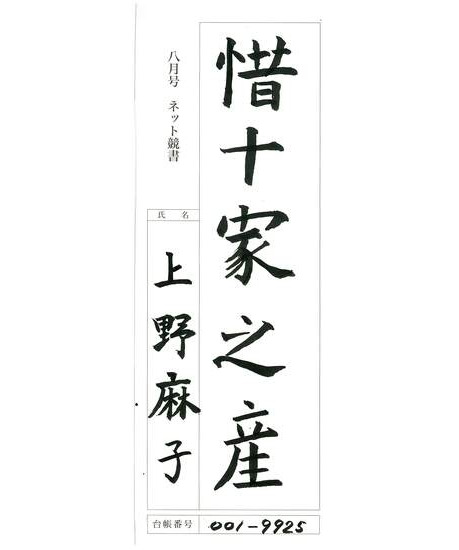 惜十家之産
八月号 ネット競書
氏名
上野麻子
台帳番号 001-9925